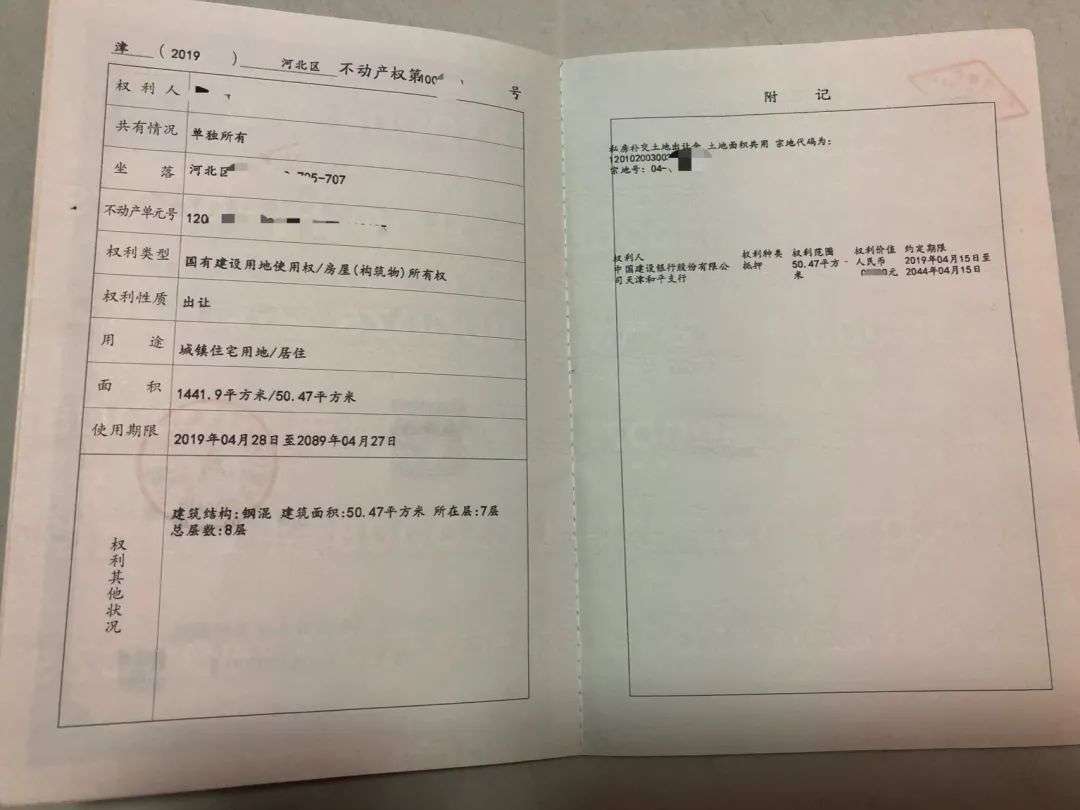 津 （ 2019 ） 河北区 不动产权第 号
权利人
共有情况 单独所有
坐落 河北区 705-707
不动产单元号 120
权利类型 国有建设用地使用权/房屋(构筑物)所有权
权利性质 出让
用途 城镇住宅用地/居住
面积 1441.9平方米/50.47平方米
使用期限 2019年04月28日至2089年04月27日
权利其他状况
建筑结构:钢混 建筑面积:50.47平方米 所在层:7层
总层数:8层
附 记
私房补交土地出让金 土地面积共用 宗地代码为:
12010200300
宗地号: 04-
权利人 权利种类 权利范围 权利价值 约定期限
中国建设银行股份有限公 抵押 50.47平方 人民币 2019年04月15日至
司天津和平支行 米 元 2044年04月15日